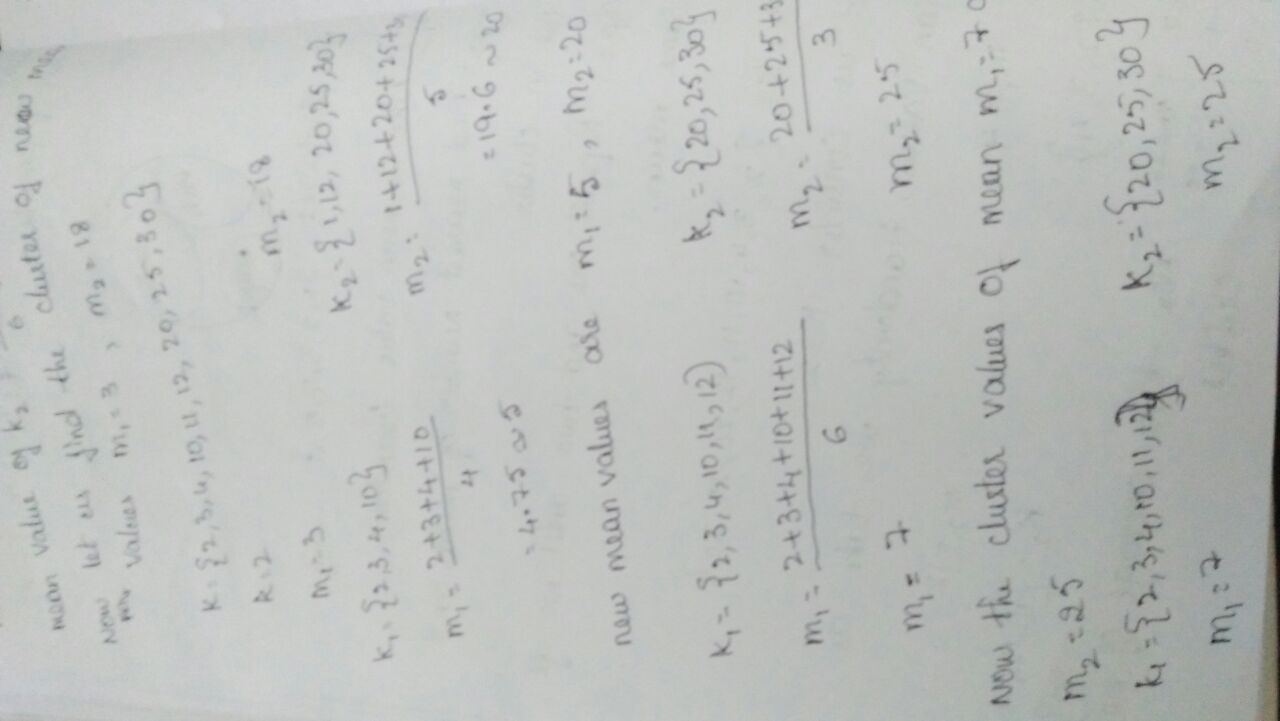 mean value of k2
now let us find the cluster of new
now values m1=3, m2=18
K={2,3,4,10,11,12,20,25,30}
k=2
m1=3 m2=18
K1={2,3,4,10} K2={1,12,20,25,30}
m1=2+3+4+10/4 m2=1+12+20+25+3/5
=4.75~5 =19.6~20
new mean values are m1=5, m2=20
K1={2,3,4,10,11,12) K2={20,25,30}
m1=2+3+4+10+11+12/6 m2=20+25+3/3
m1=7 m2=25
Now the cluster values of mean m1=7
m2=25
K1={2,3,4,10,11,12} K2={20,25,30}
m1=7 m2=25